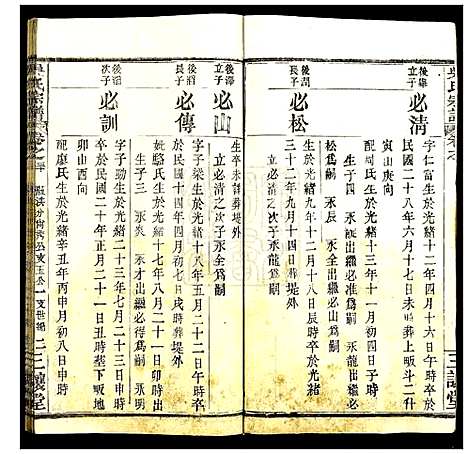 吳氏宗譜
後㷖次子
必清
字仁富生於光緒十二年四月十六日午時卒於
民國二十八年六月十七日亥時葬
寅山庚向
配周氏生於光緒十三年十一月初六日
生子四 永龍 永虎 永全出繼必松爲嗣
永辰 永金出繼必山爲嗣
後潤長子
必松
生於光緒九年九月十二月十八日辰時卒於光緒
三十二年九月十四日葬堤外
立必清之次子永全爲嗣
後澤立子
必山
生卒未詳葬堤外
立必清之次子永龍爲嗣
後滔長子
必傳
字子榮生於光緒十八年五月二十二日午時卒
於民國十四年四月初七日戌時葬堤外
姚駱氏生於光緒十七年八月二十一日卯時
生子三 永泉 永才出繼必得爲嗣 永明
後滔次子
必訓
字子勤生於光緒二十三年七月二十三日申時
卒於民國二十年十月二十一日丑時葬下地
配龐氏生於光緒辛丑年丙申月初八日申時
吳氏宗譜
三讓堂